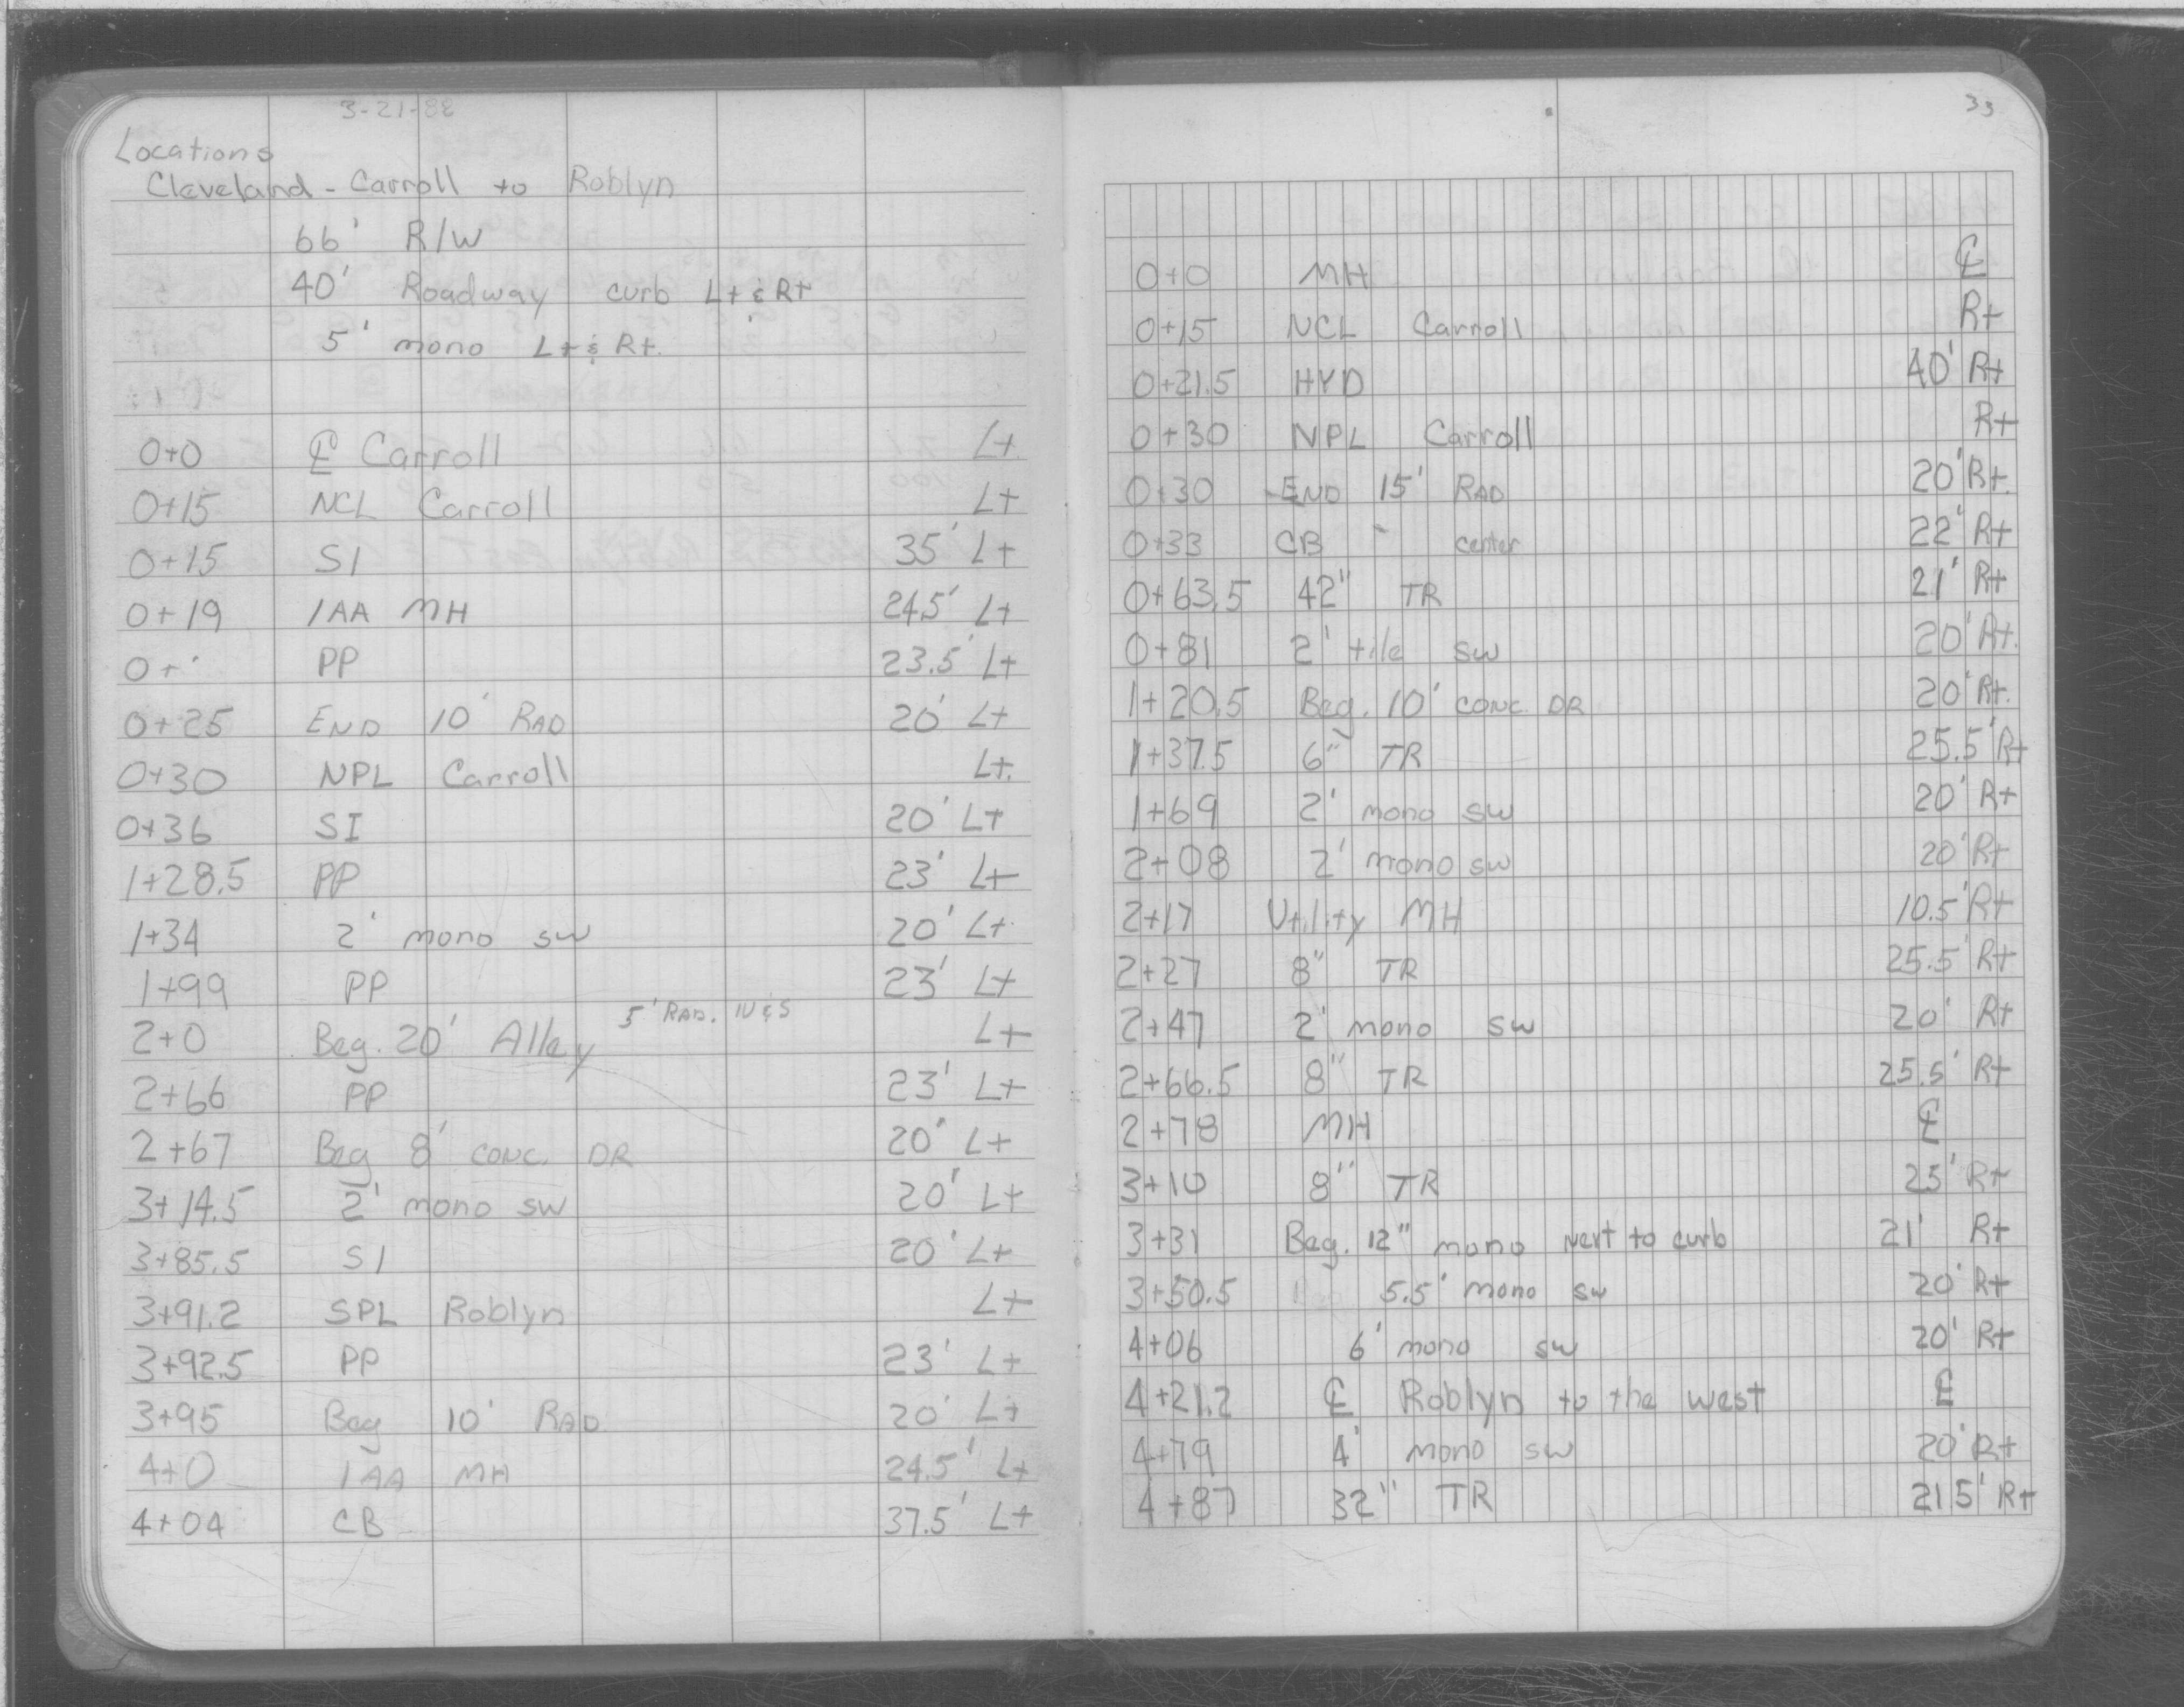 3-21-88
Locations
Cleveland - Carroll to Roblyn
66' R/W
40' Roadway curb Lt & Rt
5' mono Lt & Rt.
0+0 ℄ Carroll Lt
0+15 NCL Carroll Lt
0+15 SI 35' Lt
0+19 1AA MH 24.5' Lt
0+ PP 23.5' Lt
0+25 END 10' RAD 20' Lt
0+30 NPL Carroll Lt.
0+36 SI 20' Lt
1+28.5 PP 23' Lt
1+34 2' mono sw 20' Lt
1+99 PP 23' Lt
2+0 Beg. 20' Alley 5' RAD. N & S Lt
2+66 PP 23' Lt
2+67 Beg 8' conc. DR 20' Lt
3+14.5 2' mono sw 20' Lt
3+85.5 SI 20' Lt
3+91.2 SPL Roblyn Lt
3+92.5 PP 23' Lt
3+95 Beg 10' RAD 20' Lt
4+0 1AA MH 24.5' Lt
4+04 CB 37.5' Lt
33
0+0 MH ℄
0+15 NCL Carroll Rt
0+21.5 HYD 40' Rt
0+30 NPL Carroll Rt
0+30 END 15' RAD 20' Rt.
0+33 CB center 22' Rt
0+63.5 42" TR 21' Rt
0+81 2' tile sw 20' Rt.
1+20.5 Beg. 10' conc. DR 20' Rt.
1+37.5 6" TR 25.5' Rt
1+69 2' mono sw 20' Rt
2+08 2' mono sw 20' Rt
2+17 Utility MH 10.5' Rt
2+27 8" TR 25.5' Rt
2+47 2' mono sw 20' Rt
2+66.5 8" TR 25.5' Rt
2+78 MH ℄
3+10 8" TR 25' Rt
3+31 Beg. 12" mono next to curb 21' Rt
3+50.5 5.5' mono sw 20' Rt
4+06 6' mono sw 20' Rt
4+21.2 ℄ Roblyn to the west ℄
4+79 4' mono sw 20' Rt
4+87 32" TR 21.5' Rt